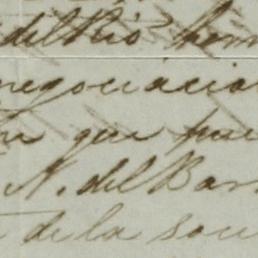 del Rio
negociacion
que
N. del Barr
de la soci